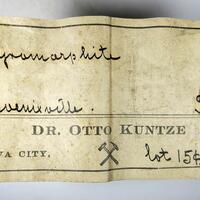 yromorphite
enixville.
$
DR. OTTO KUNTZE
VA CITY,
lot 15¢